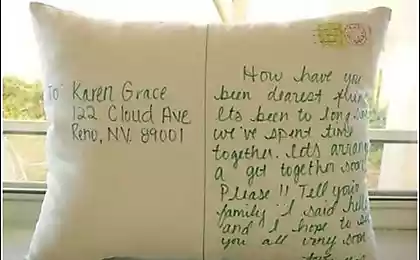 To Karen Grace
122 Cloud Ave
Reno, NV. 89001
How have you
been dearest
Its been to long
we've spent time
together. Lets
a get together soon
Please!! Tell your
family I said hello
and I hope to
you all very soon